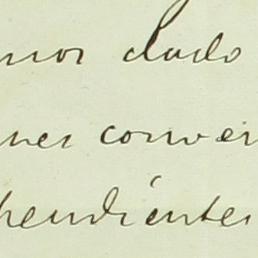 mos dado
nes conver
pendientes